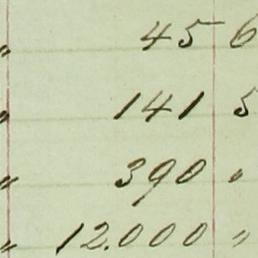 " 45 6
" 141 5
" 390 "
" 12.000 "